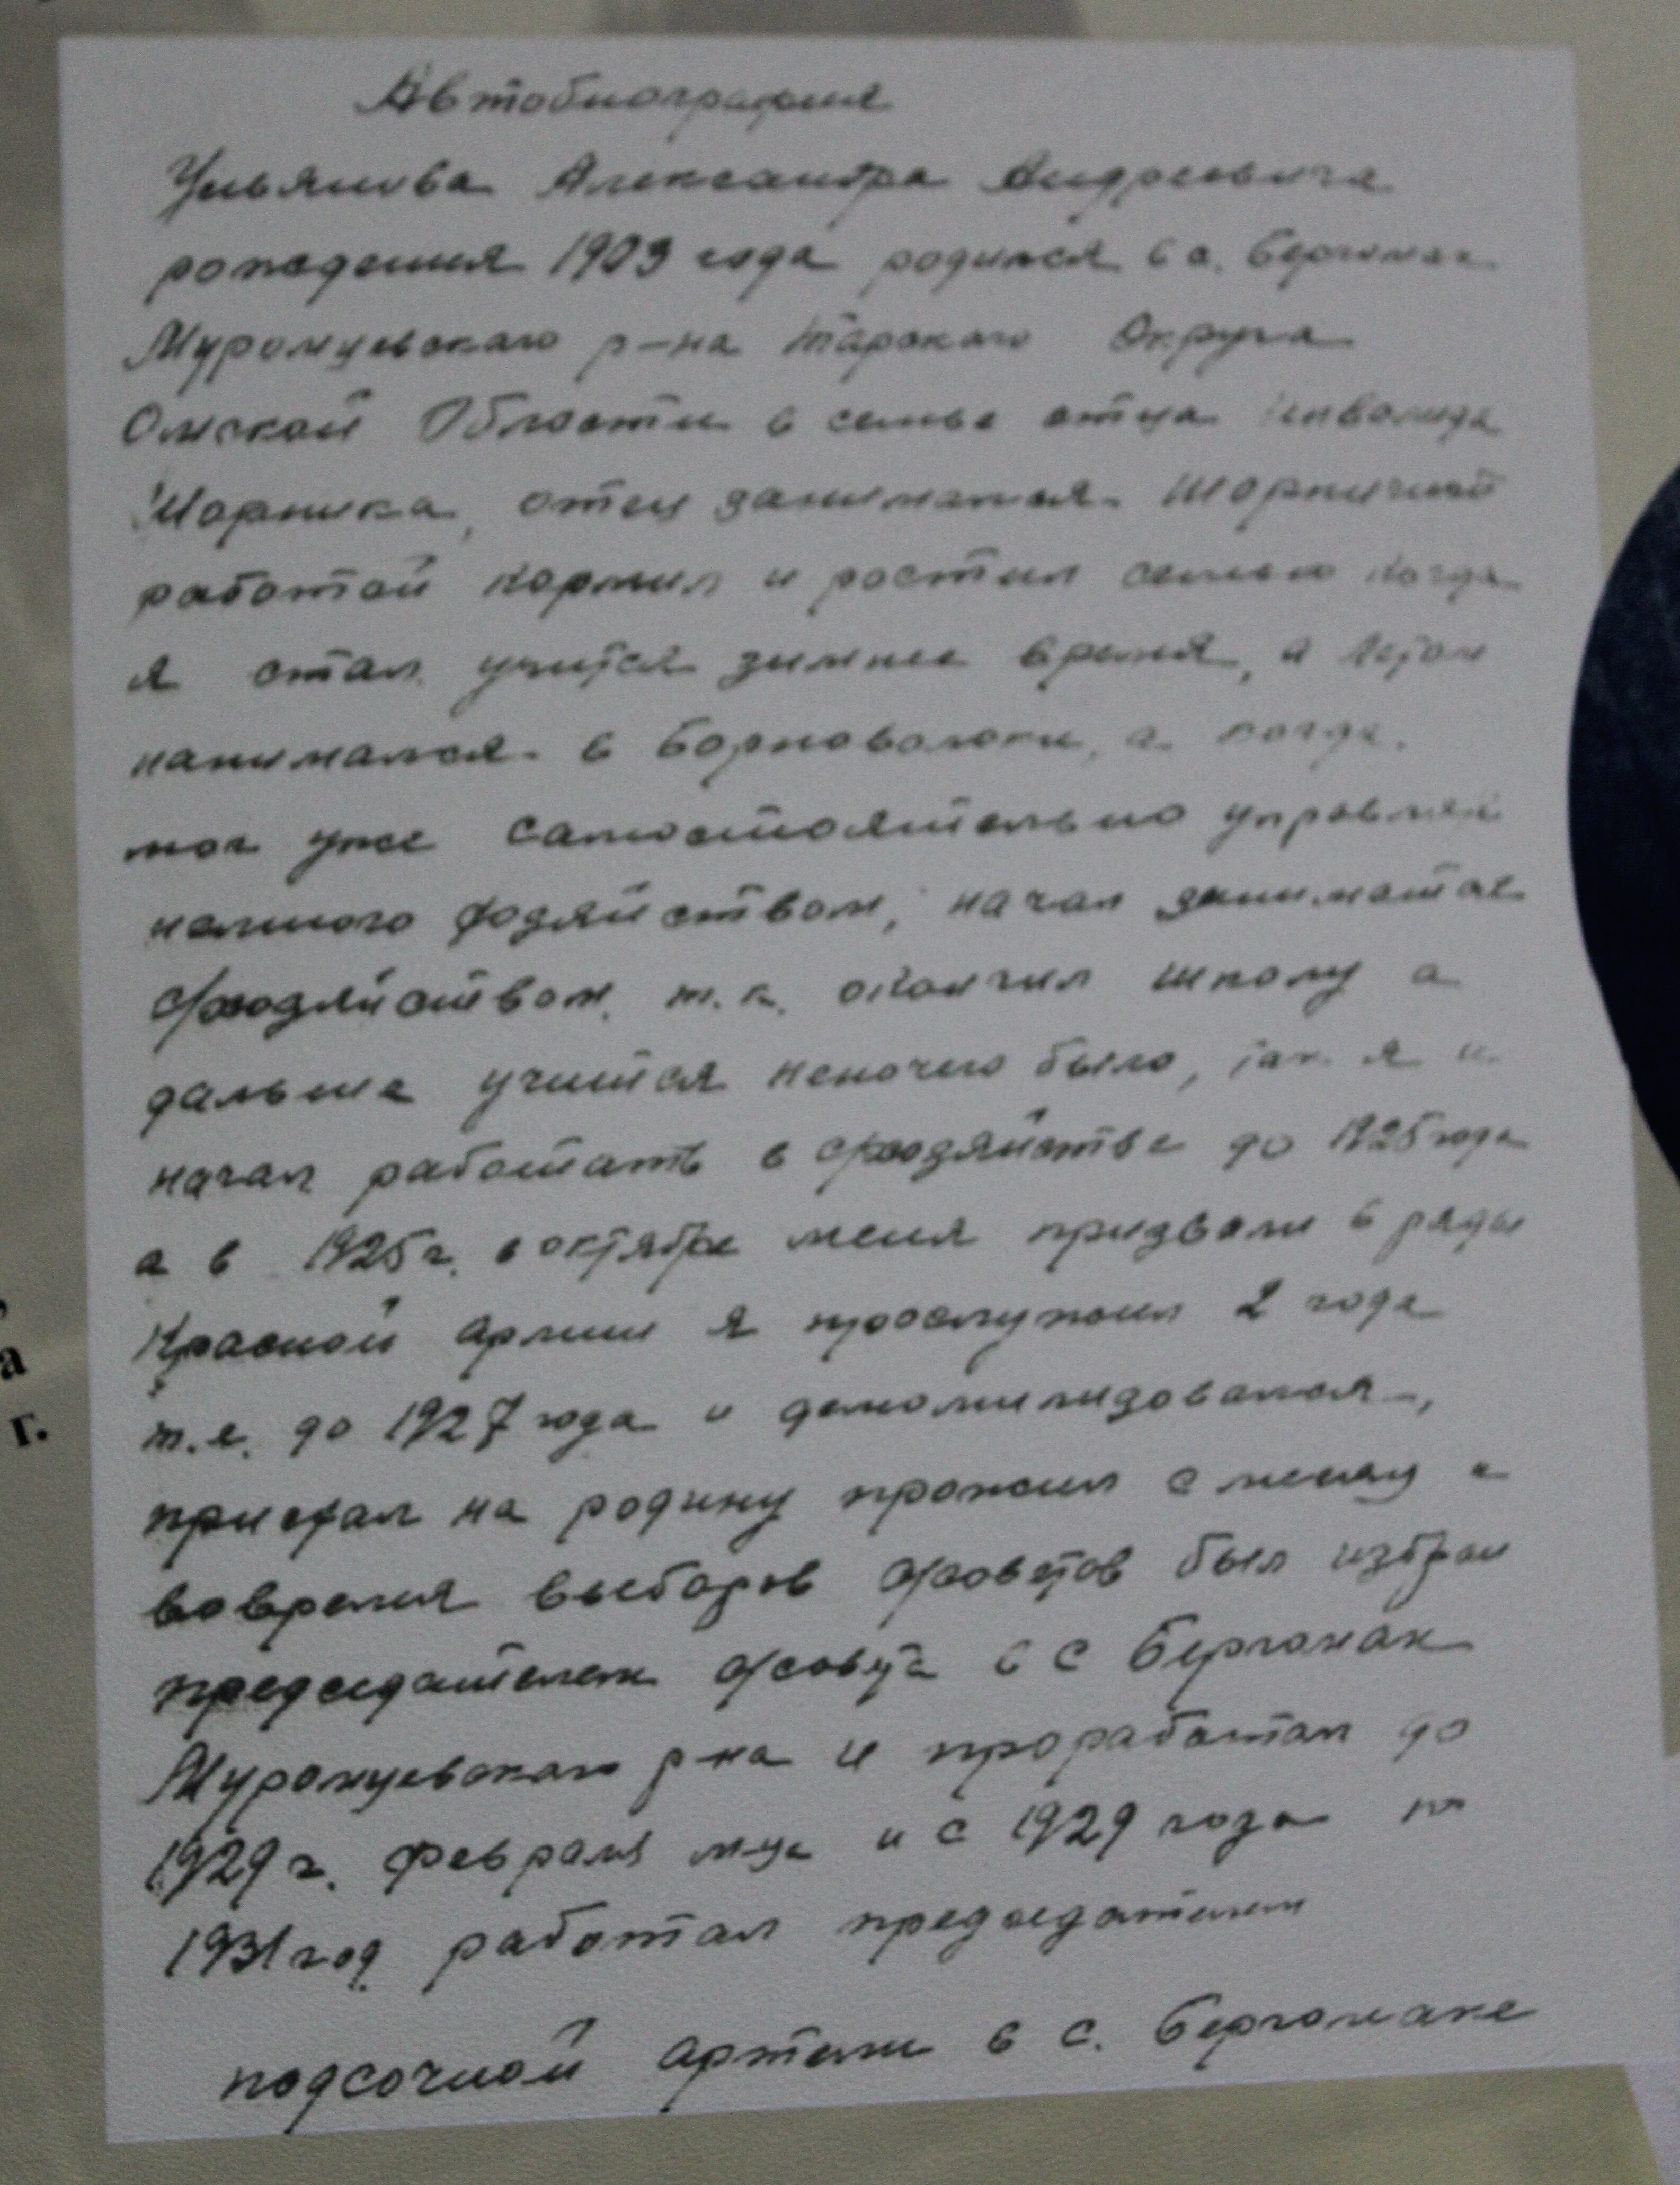 Автобиография
Ульянова Александра Андреевича
рождения 1903 года родился в с. Бергамак
Муромцевскаго р-на Тарскаго Округа
Омской Области в семье отца Инвалида
Шорника, отец занимался Шорничной
работой кормил и ростил семью когда
я стал учится зимнее время, а летом
нанимался в борноволоки, а когда
мог уже самостоятельно управлят
немного хозяйством, начал заниматся
с/хозяйством. т.к. окончил школу а
дальше учится неночего было, так я и
начал работать в с/хозяйстве до 1925 года
а в 1925 г. в октябре меня призвали в ряды
Красной армии я прослужил 2 года
т.е. до 1927 года и демомилизовался,
приехал на родину прожил с месяц и
вовремя выборов с/советов был избран
председателем с/совета в с Бергамак
Муромцевскаго р-на и проработал до
1929 г. февраля м-ца и с 1929 года по
1931 год работал председателем
подсочной артели в с. Бергамаке
а
г.